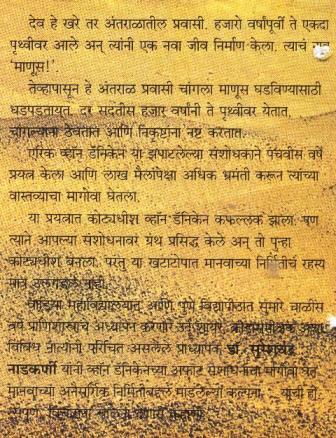 देव हे खरे तर अंतराळातील प्रवासी. हजारो वर्षांपूर्वी ते एकदा
पृथ्वीवर आले अन् त्यांनी एक नवा जीव निर्माण केला. त्याचं नाव
'माणूस!'
तेव्हापासून हे अंतराळ प्रवासी चांगला माणूस घडविण्यासाठी
धडपडतायत. दर सदतीस हजार वर्षांनी ते पृथ्वीवर येतात,
चांगल्यांना ठेवतात आणि निकृष्टांना नष्ट करतात.
एरिक व्हॉन डॅनिकेन या झपाटलेल्या संशोधकाने पंचवीस वर्षे
प्रयत्न केला आणि लाख मैलांपेक्षा अधिक भ्रमंती करून त्यांच्या
वास्तव्याचा मागोवा घेतला.
या प्रयत्नात कोट्यधीश व्हॉन डॅनिकेन कफल्लक झाला. पण
त्याने आपल्या संशोधनावर ग्रंथ प्रसिद्ध केले अन् तो पुन्हा
कोट्यधीश बनला. परंतु या खटाटोपात मानवाच्या निर्मितीचं रहस्य
मात्र उलगडलं नाही.
महाविद्यालयात आणि पुणे विद्यापीठात सुमारे चाळीस
वर्षे प्राणिशास्त्राचे अध्यापन करणारे उर्दू शायर, क्रीडासमीक्षक अशा
विविध नात्यांनी परिचित असलेले प्राध्यापक डॉ. सुरेशचंद्र
नाडकर्णी यांनी व्हॉन डॅनिकेनच्या अफाट संशोधनाचा मागोवा घेत
मानवाच्या अनैसर्गिक निर्मितीबद्दल मांडलेल्या कल्पना